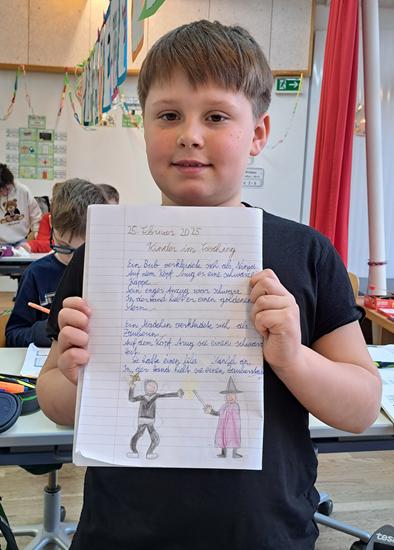 25. Februar 2025
Kinder im Fasching
Ein Bub verkleidete sich als Ninja.
Auf dem Kopf trug er eine schwarze
Kappe.
Sein enger Anzug war schwarz.
In der Hand hielt er einen goldenen
Stern.
Ein Mädchen verkleidete sich als
Zauberin.
Auf dem Kopf trug sie einen schwarzen
Hut.
Sie hatte einen lila Mantel an.
In der Hand hielt sie einen Zauberstab.